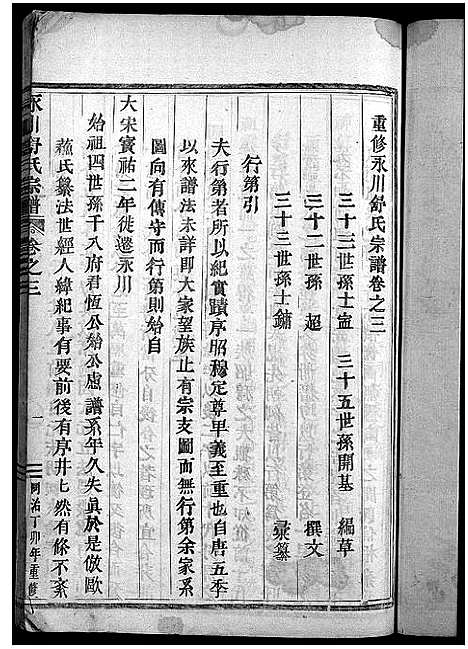 重修永川舒氏宗譜卷之三
三十三世孫士寍 三十五世孫開基 編草
三十二世孫 超 撰文
三十三世孫士鏽 彔纂
行第引
夫行第者所以紀實蹟序昭穆定尊卑義至重也自唐五季
以來譜法未詳即大家望族止有宗支圖而無行第余家系
圖向有傳守而行第則始自
大宋寳祐二年徙遷永川
始祖四世孫千八府君恆公始公慮譜系年久失眞於是倣歐
蘓氏纂法世經人緯紀事有要前後有序井乜然有條不紊
永川舒氏宗譜 卷之三 一 同治丁卯年重修